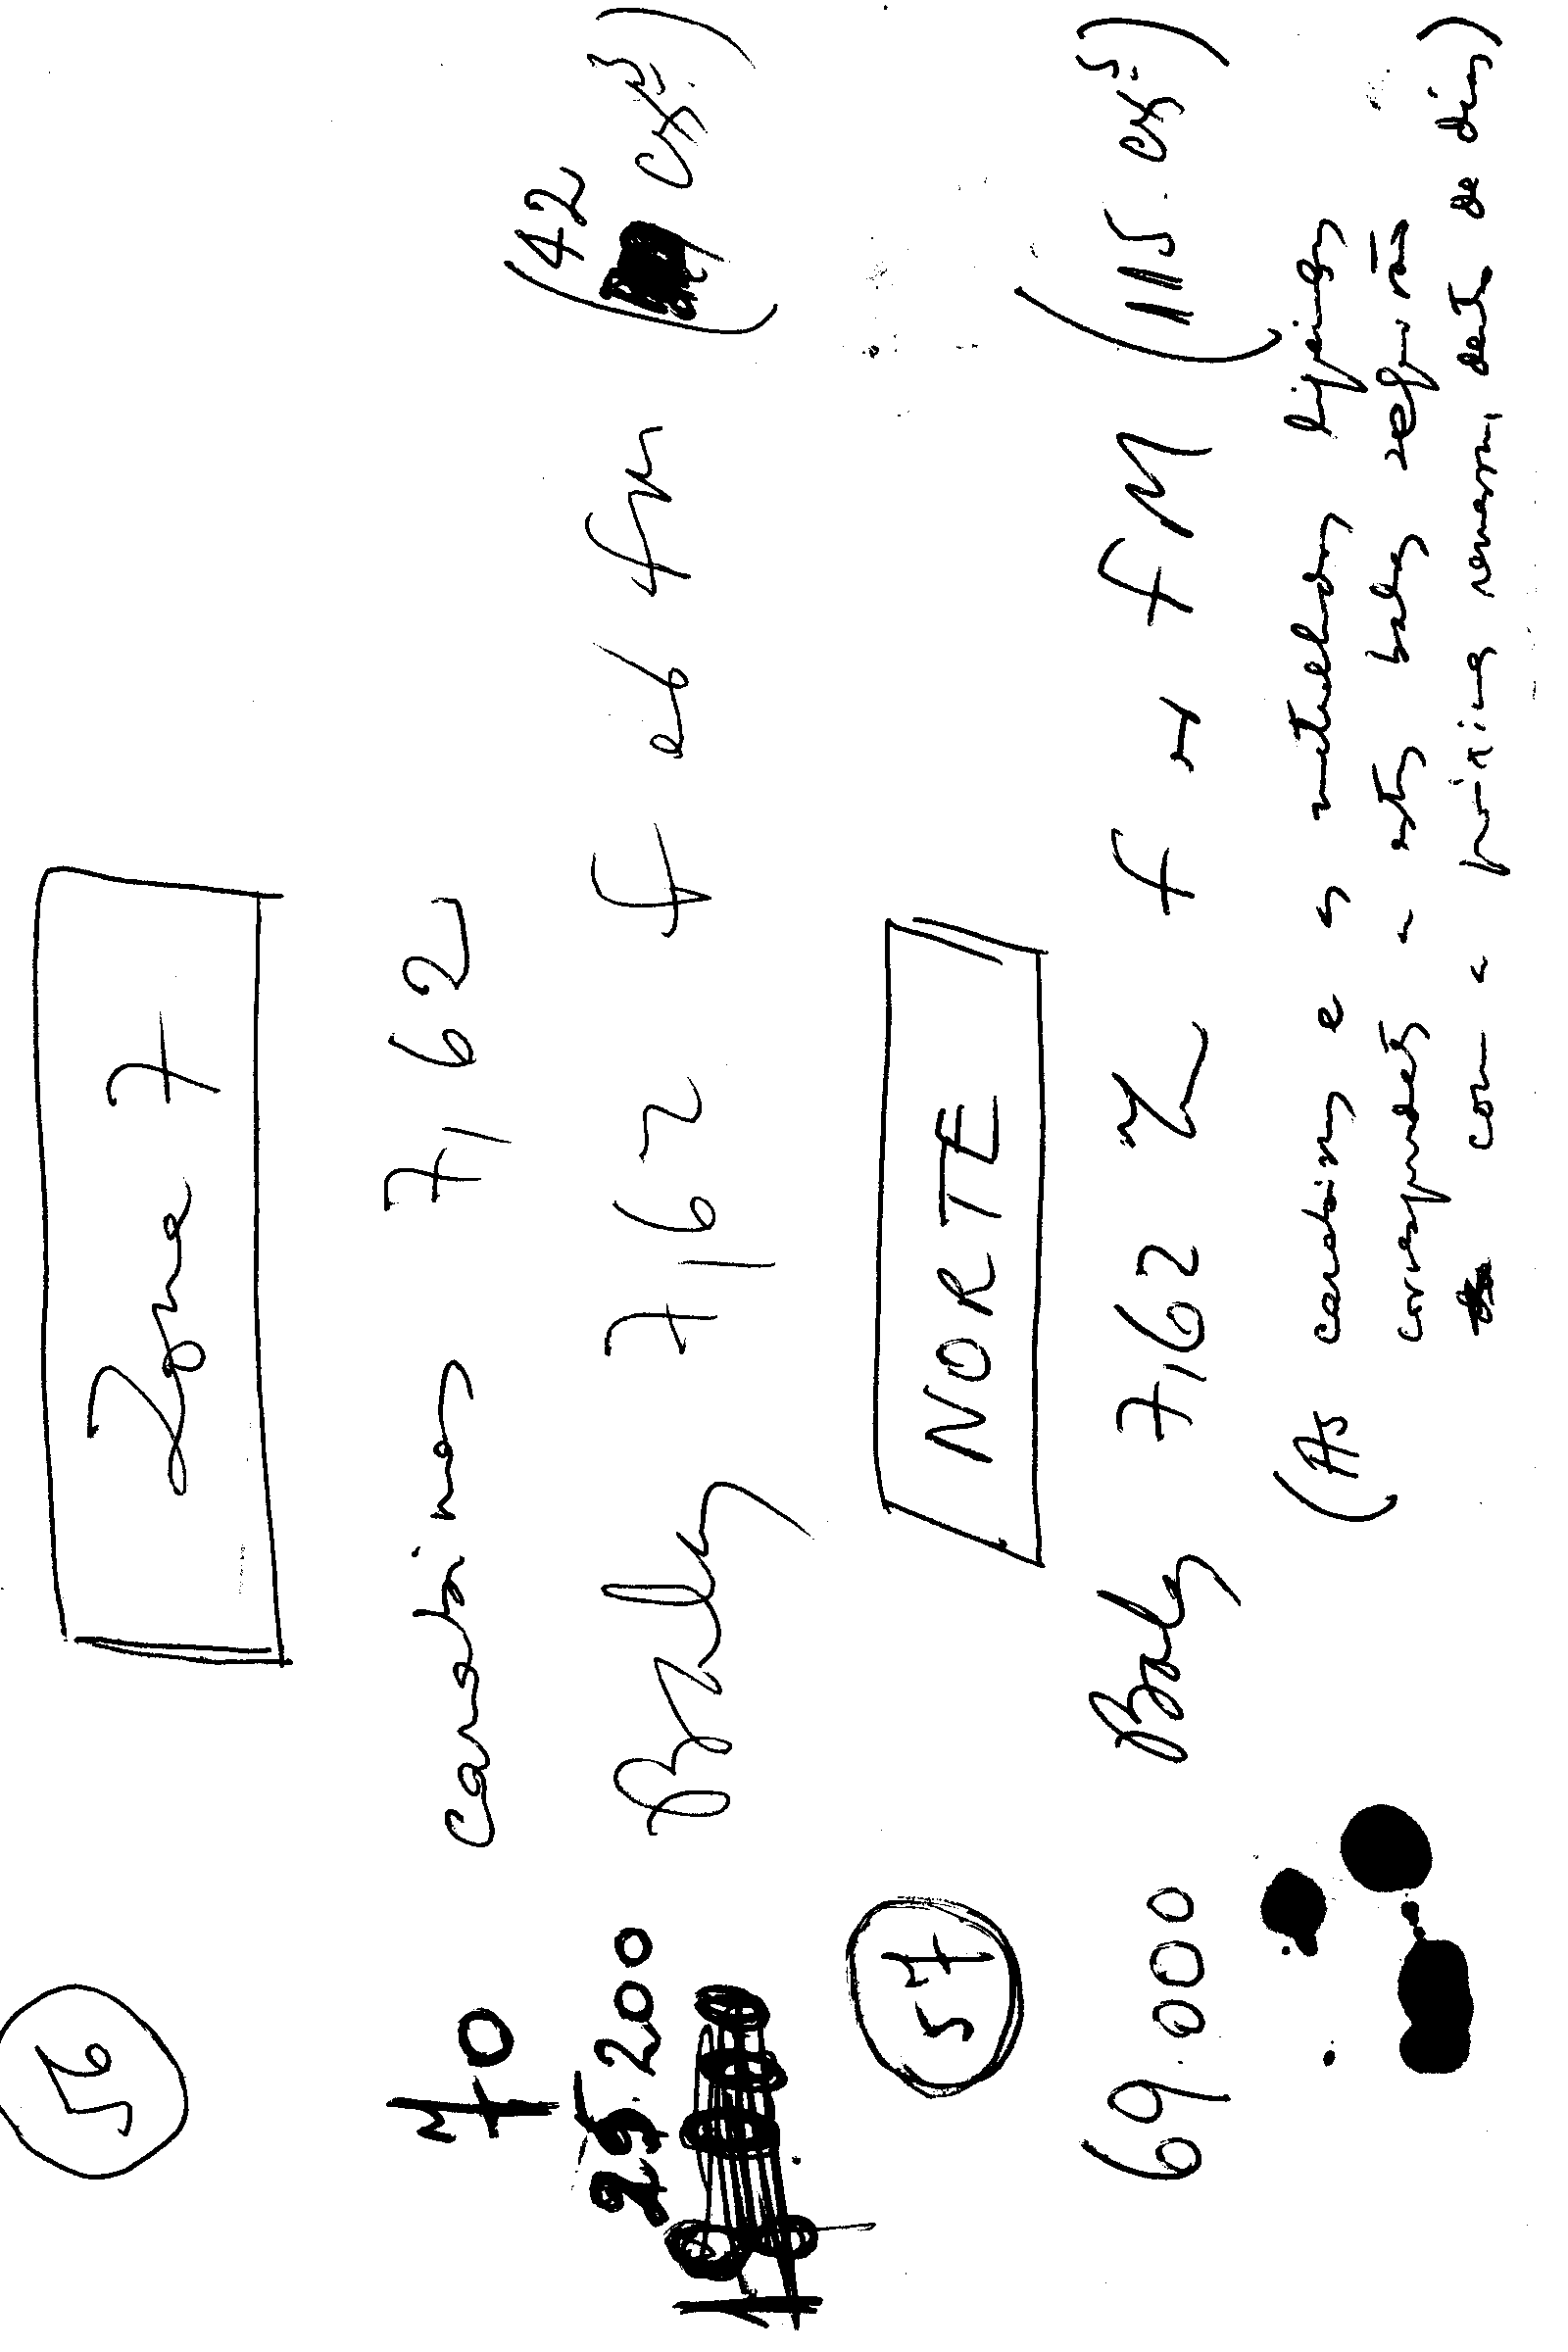 56
Zona 7
70 carabinas 7,62
25.200 Balas 7,62 (42 cxs)
57
NORTE
69.000 Balas 7,62 (115 cxs)
(As carabinas e as metralhadoras ligeiras
correspondentes a estas balas seguirão
com a próxima remessa, dentro de dias)